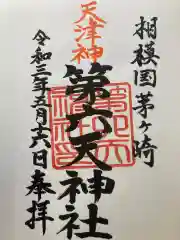 相模国茅ヶ崎
天津神
第六天神社
令和三年五月十六日奉拝